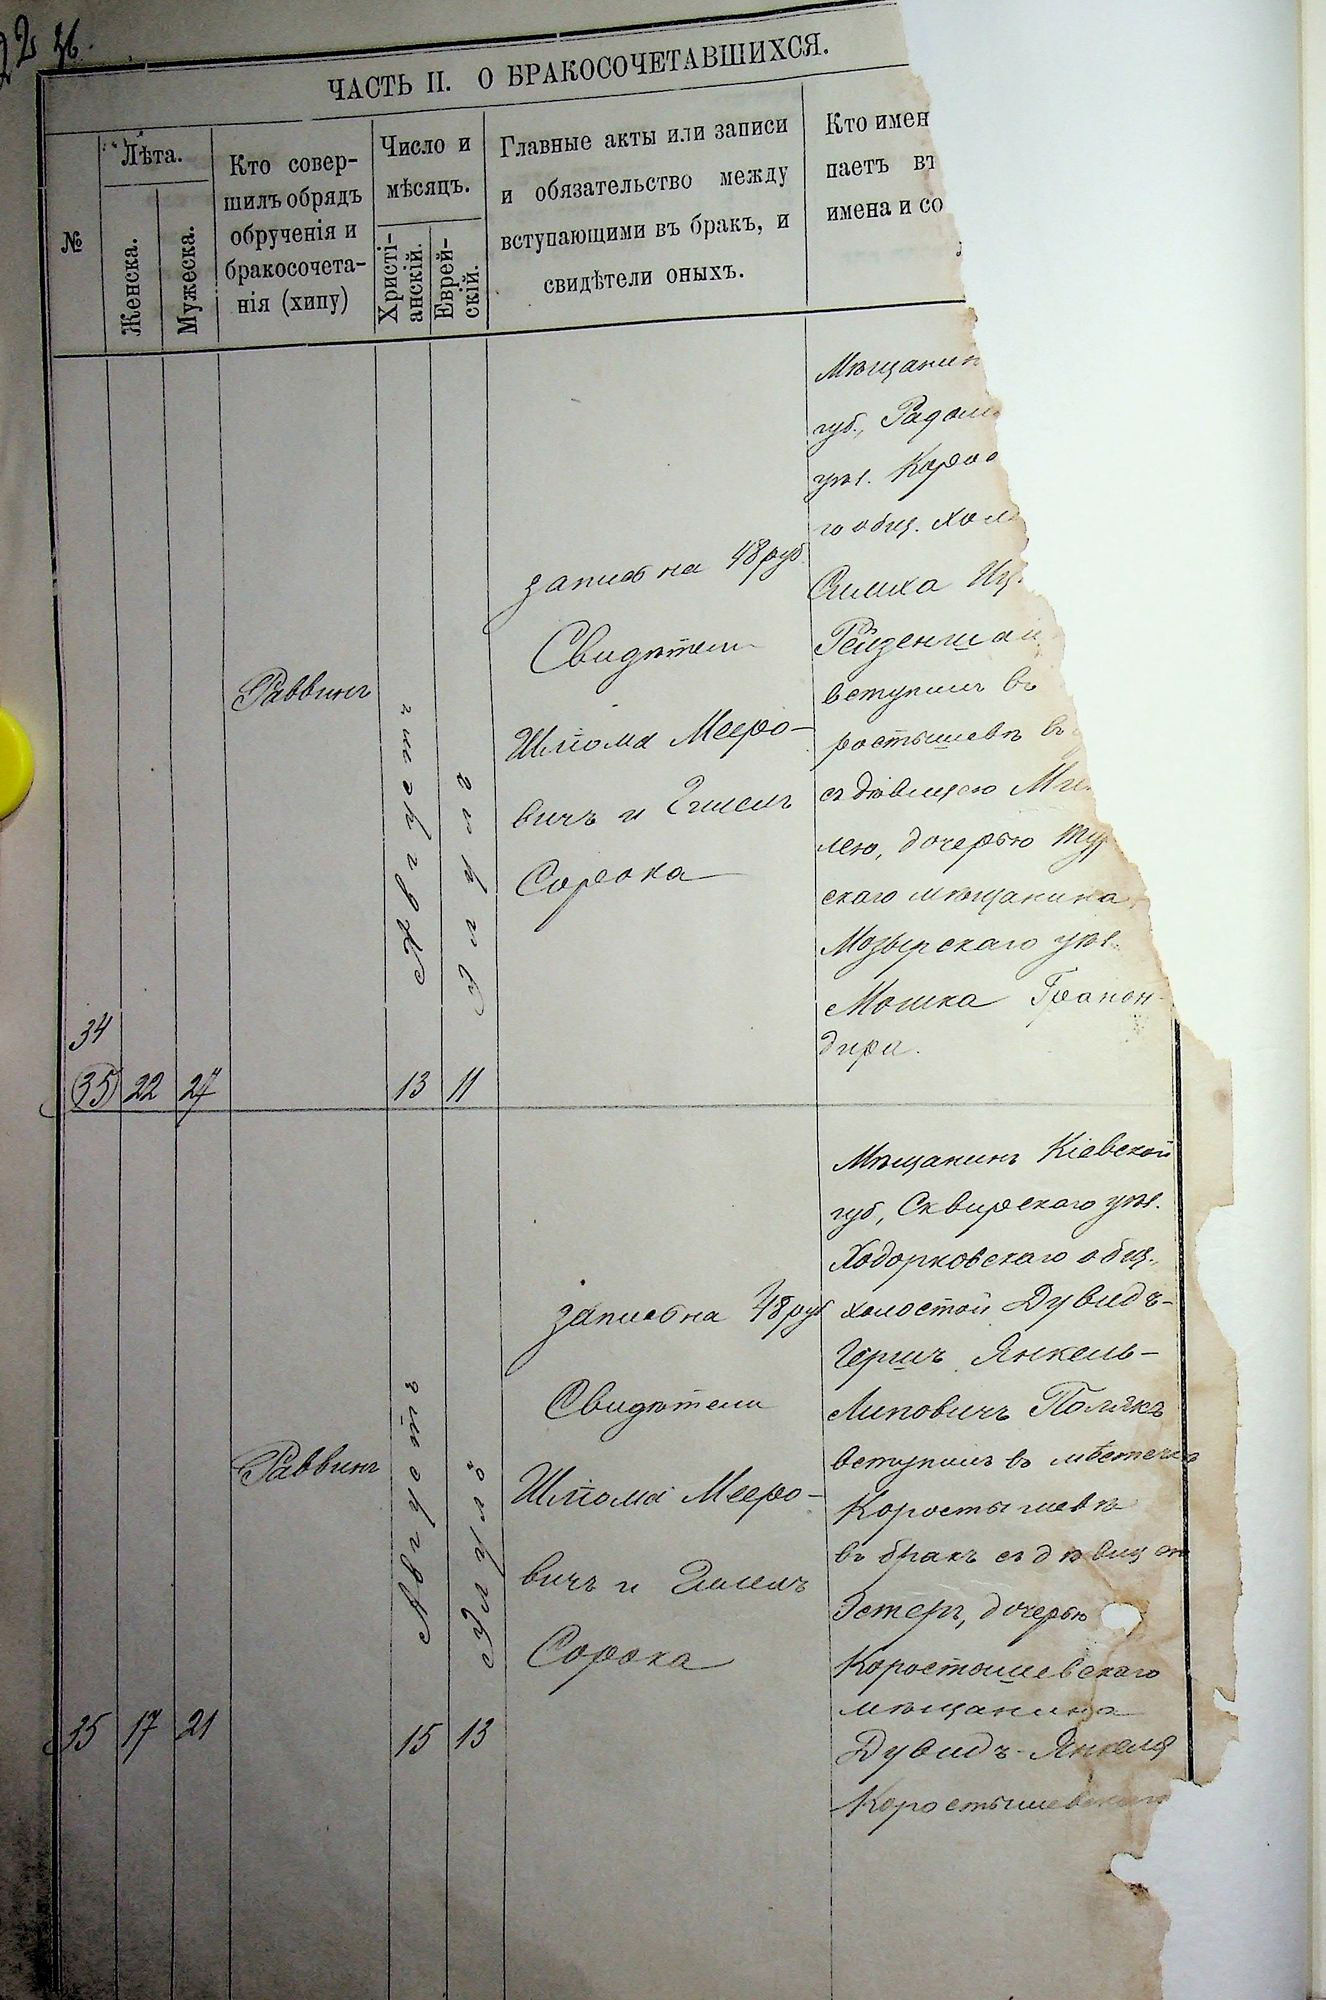 ЧАСТЬ II. О БРАКОСОЧЕТАВШИХСЯ.
№
Лѣта.
Женска.
Мужеска.
Кто совер-
шилъ обрядъ
обрученія и
бракосочета-
нія (хипу)
Число и
мѣсяцъ.
Христі-
анскій.
Еврей-
скій.
Главные акты или записи
и обязательство между
вступающими въ бракъ, и
свидѣтели оныхъ.
Кто имен
паетъ въ
имена и со
34
(35) 22 27
Раввинъ
Августъ
13
Элулъ
11
запись на 48 руб.
Свидѣтели
Шлйома Мееро-
вичъ и
Сорока
Мѣщанин
губ., Радом
уѣз.
го общ. хол
Симха Иц
Рейзеншт
вступилъ въ
ростышевѣ въ
съ дѣвицею
лею, дочерью Тур
скаго мѣщанина
Мозырскаго уѣз.
Мошка
35 17 21
Раввинъ
Августъ
15
Элулъ
13
запись на 48 руб
Свидѣтели
Шлйома Мееро-
вичъ и
Сорока
Мѣщанинъ Кіевской
губ, Сквирскаго уѣз.
Ходорковскаго общ.
холостой Дувидъ-
Гершъ Янкель-
Липовичъ Полякъ
вступилъ въ мѣстечкѣ
Коростышевѣ
въ бракъ съ дѣвицею
Эстеръ, дочерью
Коростышевскаго
мѣщанина
Дувидъ-Янкеля
Коростышевскаго